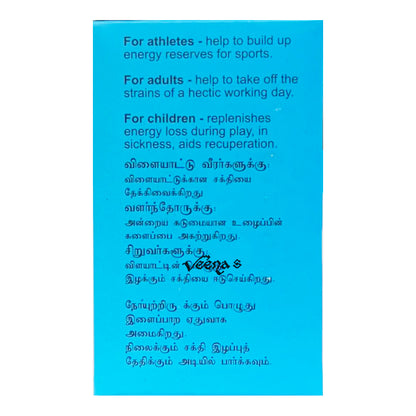 For athletes - help to build up
energy reserves for sports.
For adults - help to take off the
strains of a hectic working day.
For children - replenishes
energy loss during play, in
sickness, aids recuperation.
விளையாட்டு வீரர்களுக்கு:
விளையாட்டுக்கான சக்தியை
தேக்கிவைக்கிறது
வளர்ந்தோருக்கு:
அன்றைய கடுமையான உழைப்பின்
களைப்பை அகற்றுகிறது.
சிறுவர்களுக்கு:
விளயாட்டின் Veena's
இழக்கும் சக்தியை ஈடுசெய்கிறது.
நோயுற்றிரு க்கும் பொழுது
இளைப்பாற ஏதுவாக
அமைகிறது.
நிலைக்கும் சக்தி இழப்புத்
தேதிக்கும் அடியில் பார்க்கவும்.